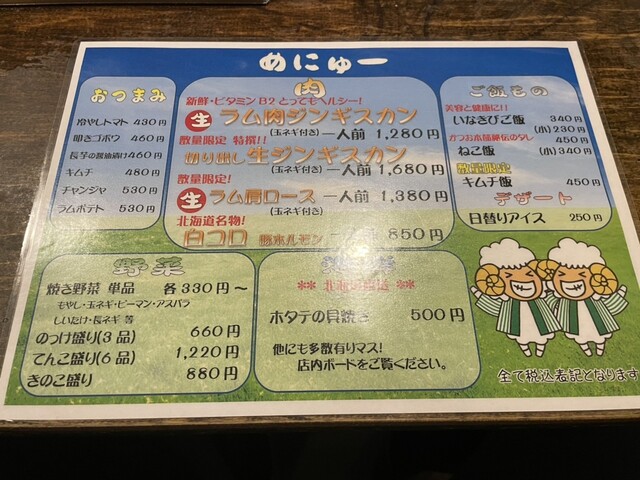 めにゅー
おつまみ
冷やしトマト 430円
叩きゴボウ 460円
長芋の醤油漬け 460円
キムチ 480円
チャンジャ 530円
ラムポテト 530円
肉
新鮮・ビタミンB2とってもヘルシー!
生 ラム肉ジンギスカン
(玉ネギ付き) 一人前 1,280円
数量限定 特撰!!
切り出し生ジンギスカン
(玉ネギ付き) 一人前 1,680円
数量限定!
生 ラム肩ロース 一人前 1,380円
(玉ネギ付き)
北海道名物!
白コロ 豚ホルモン 850円
ご飯もの
美容と健康に!!
いなきびご飯 340円
(小)230円
かつお本節秘伝のタレ 450円
ねこ飯 (小)340円
数量限定
キムチ飯 450円
デザート
日替りアイス 250円
野菜
焼き野菜 単品 各330円~
もやし・玉ネギ・ピーマン・アスパラ
しいたけ・長ネギ 等
のっけ盛り(3品) 660円
てんこ盛り(6品) 1,220円
きのこ盛り 880円
** 北海道 **
ホタテの貝焼き 500円
他にも多数有りマス!
店内ボードをご覧ください。
全て税込表記となります